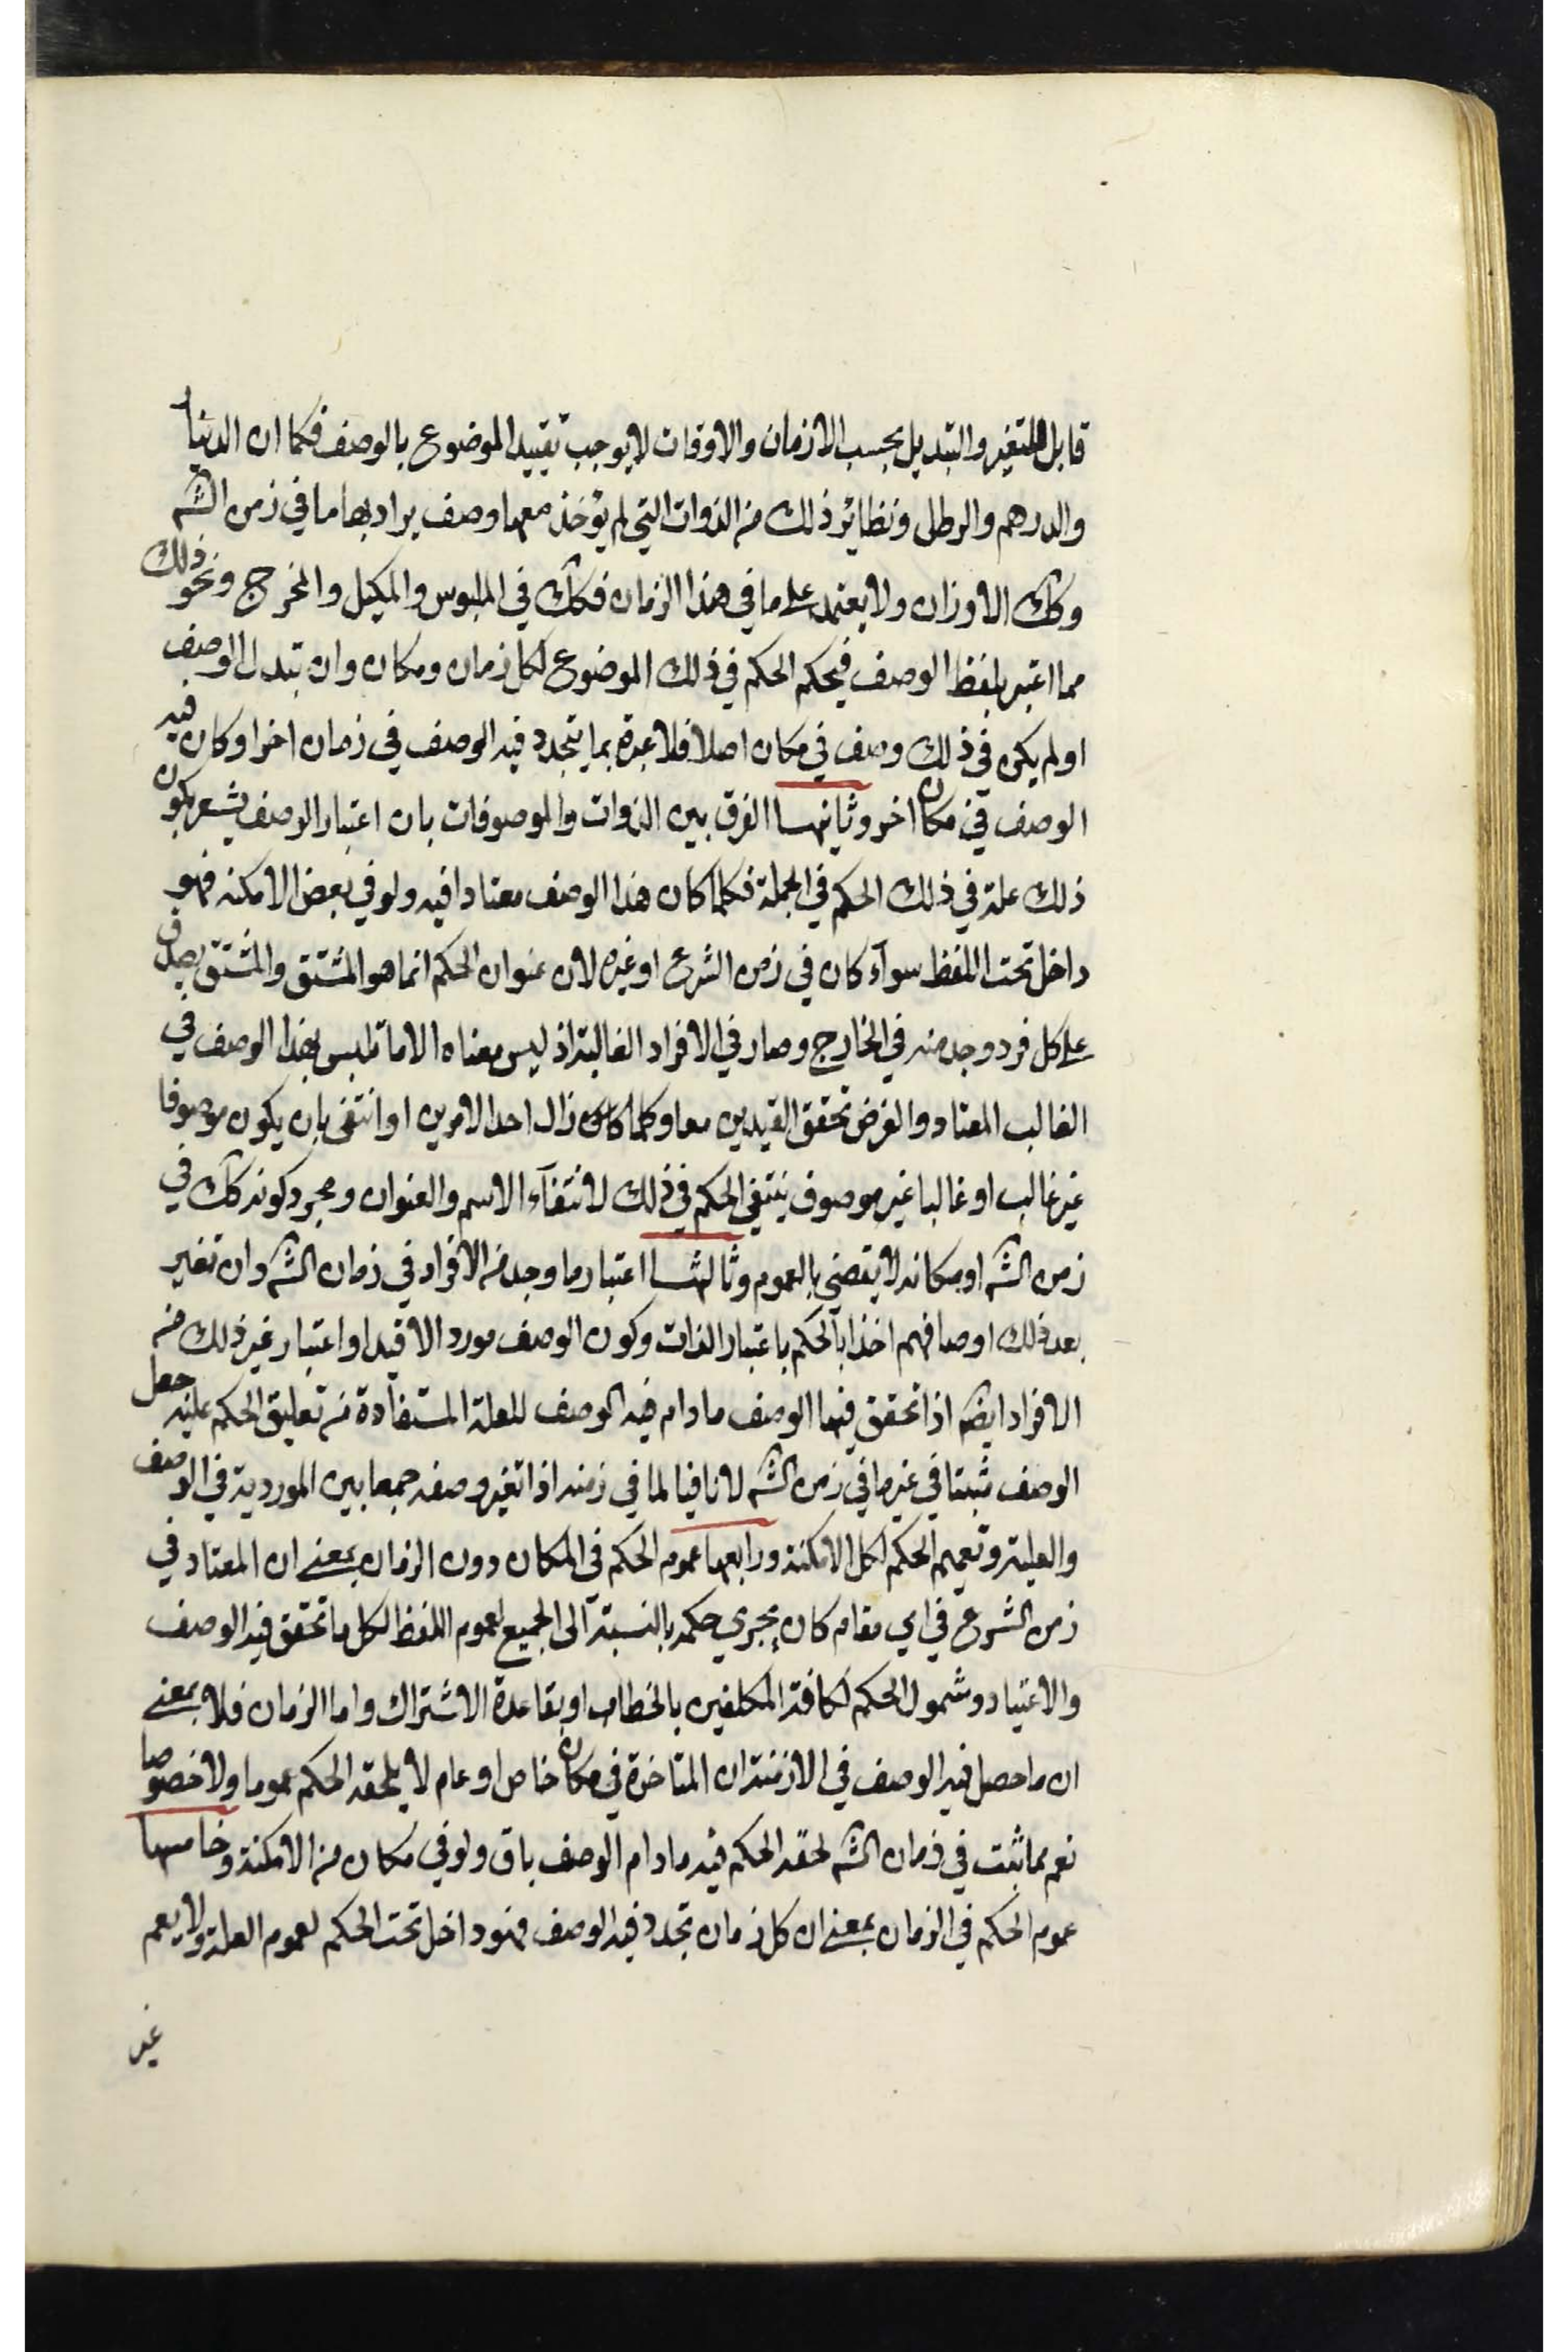 قابل للتغير والتبديل بحسب الازمان والاوقات لا يوجب تقييد الموضوع بالوصف فكما ان الدينار
والدرهم والرطل ونظاير ذلك من الذوات التي لم يؤخذ معها وصف يراد بها ما في زمن الشه
وكك الاوزان ولا يعتمد على ما في هذا الزمان فكك في الملبوس والمكيل والمخرج ونحو ذلك
مما اعتبر بلفظ الوصف فيحكم الحكم في ذلك الموضوع لكل زمان ومكان وان تبدل الوصف
او لم يكن في ذلك وصف في مكان اصلا فلا عبرة بما يتجدد فيه الوصف في زمان اخر او كان فيه
الوصف في مكان اخر وثانيها الفرق بين الذوات والموصوفات بان اعتبار الوصف يشعر بكون
ذلك علة في ذلك الحكم في الجملة فكلما كان هذا الوصف معتادا فيه ولو في بعض الامكنه فهو
داخل تحت اللفظ سوآء كان في زمن الشرع او غيره لان عنوان الحكم انما هو المشتق والمشتق يصدق
على كل فرد وجد منه في الخارج وصار في الافراد الغالبة اذ ليس معناه الا ما تلبس بهذا الوصف في
الغالب المعتاد والفرض تحقق القيدين معا وكلما زال احد الامرين او انتفى بان يكون موصوفا
غير غالب او غالبا غير موصوف ينتفي الحكم في ذلك لانتفآء الاسم والعنوان ومجرد كونه كك في
زمن الشه او مكانه لا يقضي بالعموم وثالثها اعتبار ما وجد من الافراد في زمان الشه وان تغير
بعد ذلك اوصافهم اخذا بالحكم باعتبار الذات وكون الوصف موردا لا قيدا واعتبار غير ذلك من
الافراد ايضا اذا تحقق فيها الوصف ما دام فيه الوصف للعلة المستفادة من تعليق الحكم عليه جعل
الوصف مثبتا في غير ما في زمن الشه لا نافيا لما في زمنه اذا تغير وصفه جمعا بين الموردية في الوصف
والعلية وتعميم الحكم لكل الامكنة ورابعها عموم الحكم في المكان دون الزمان بمعنى ان المعتاد في
زمن الشرع في اي مقام كان يجري حكمه بالنسبة الى الجميع لعموم اللفظ لكل ما تحقق فيه الوصف
والاعتياد وشمول الحكم لكافة المكلفين بالخطاب او بقاعدة الاشتراك واما الزمان فلا بمعنى
ان ما حصل فيه الوصف في الازمنة المتاخرة في مكان خاص او عام لا يلحقه الحكم عموما ولا خصوصا
نعم مما ثبت في زمان الشه لحقه الحكم فيه ما دام الوصف باق ولو في مكان من الامكنة وخامسها
عموم الحكم في الزمان بمعنى ان كل زمان تجدد فيه الوصف فهو داخل تحت الحكم لعموم العلة ولا يعم
غير